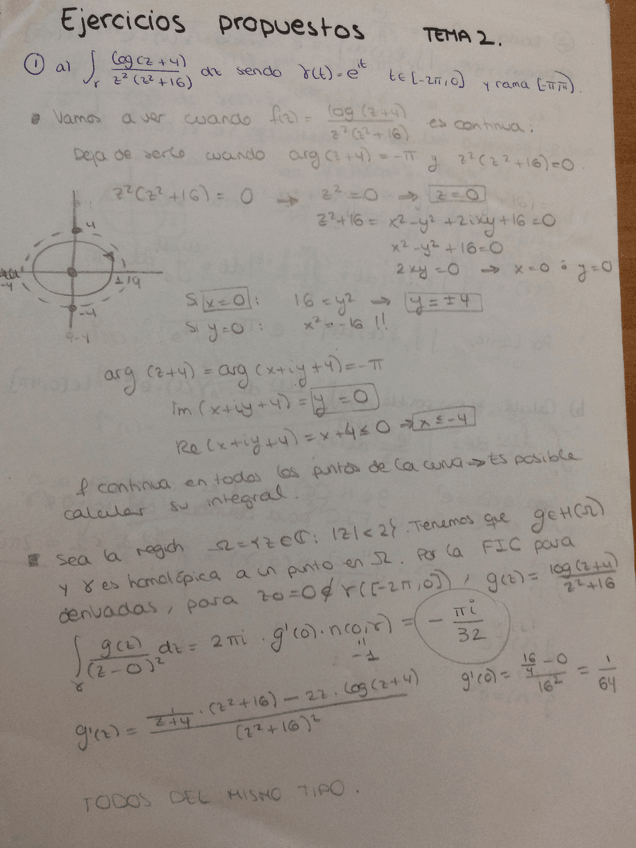 Ejercicios propuestos TEMA 2.
① a) ∫γ log(z+4) / z²(z²+16) dz sendo γ(t)=e^it t∈[-2π,0] y rama [-π,π).
• Vamos a ver cuando f(z)= log(z+4) / z²(z²+16) es continua.
Deja de serlo cuando arg(z+4)=-π y z²(z²+16)=0.
z²(z²+16)=0 → z²=0 → z=0
z²+16= x²-y²+2ixy+16=0
x²-y²+16=0
2xy=0 → x=0 ó y=0
4
-4
-4
Si x=0: 16=y² → y=±4
Si y=0: x²=-16 !!
arg(z+4)=arg(x+iy+4)=-π
Im(x+iy+4)= y=0
Re(x+iy+4)=x+4≤0 → x≤-4
f continua en todos los puntos de la curva → Es posible
calcular su integral.
Sea la región Ω={z∈ℂ: |z|<2}. Tenemos que g∈H(Ω)
y γ es homotópica a un punto en Ω. Por la FIC para
derivadas, para z0=0∉γ([-2π,0]), g(z)= log(z+4) / z²+16
∫γ g(z) / (z-0)² dz = 2πi · g'(0)·n(0,γ) = - πi / 32
-1
g'(0)= 16/4 - 0 / 16² = 1 / 64
g'(z)= 1/z+4 · (z²+16) - 2z · log(z+4) / (z²+16)²
TODOS DEL MISMO TIPO.